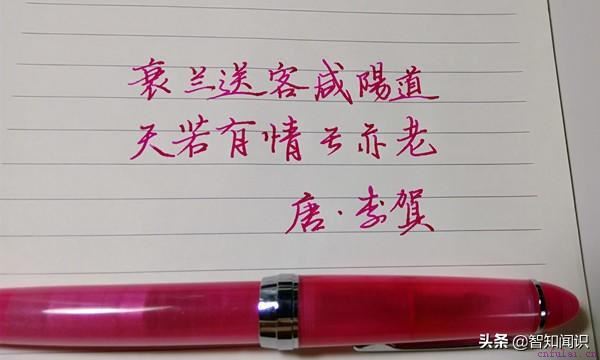 衰兰送客咸陽道
天若有情天亦老
唐·李贺
头条 @智知闻识
cnfulai.cn